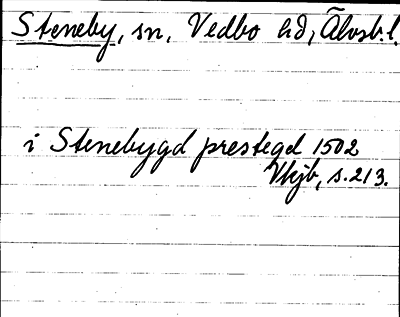 Steneby, sn, Vedbo hd, Älvsb. l.
i Stenebygd prestegel 1502
s. 213.